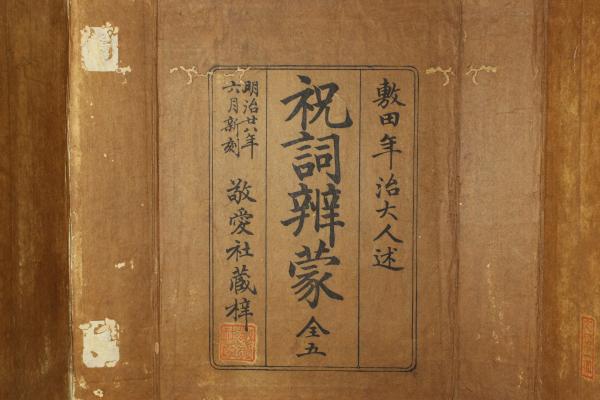 敷田年治大人述
祝詞辨蒙 全五
明治廿八年
六月新刻
敬愛社蔵梓